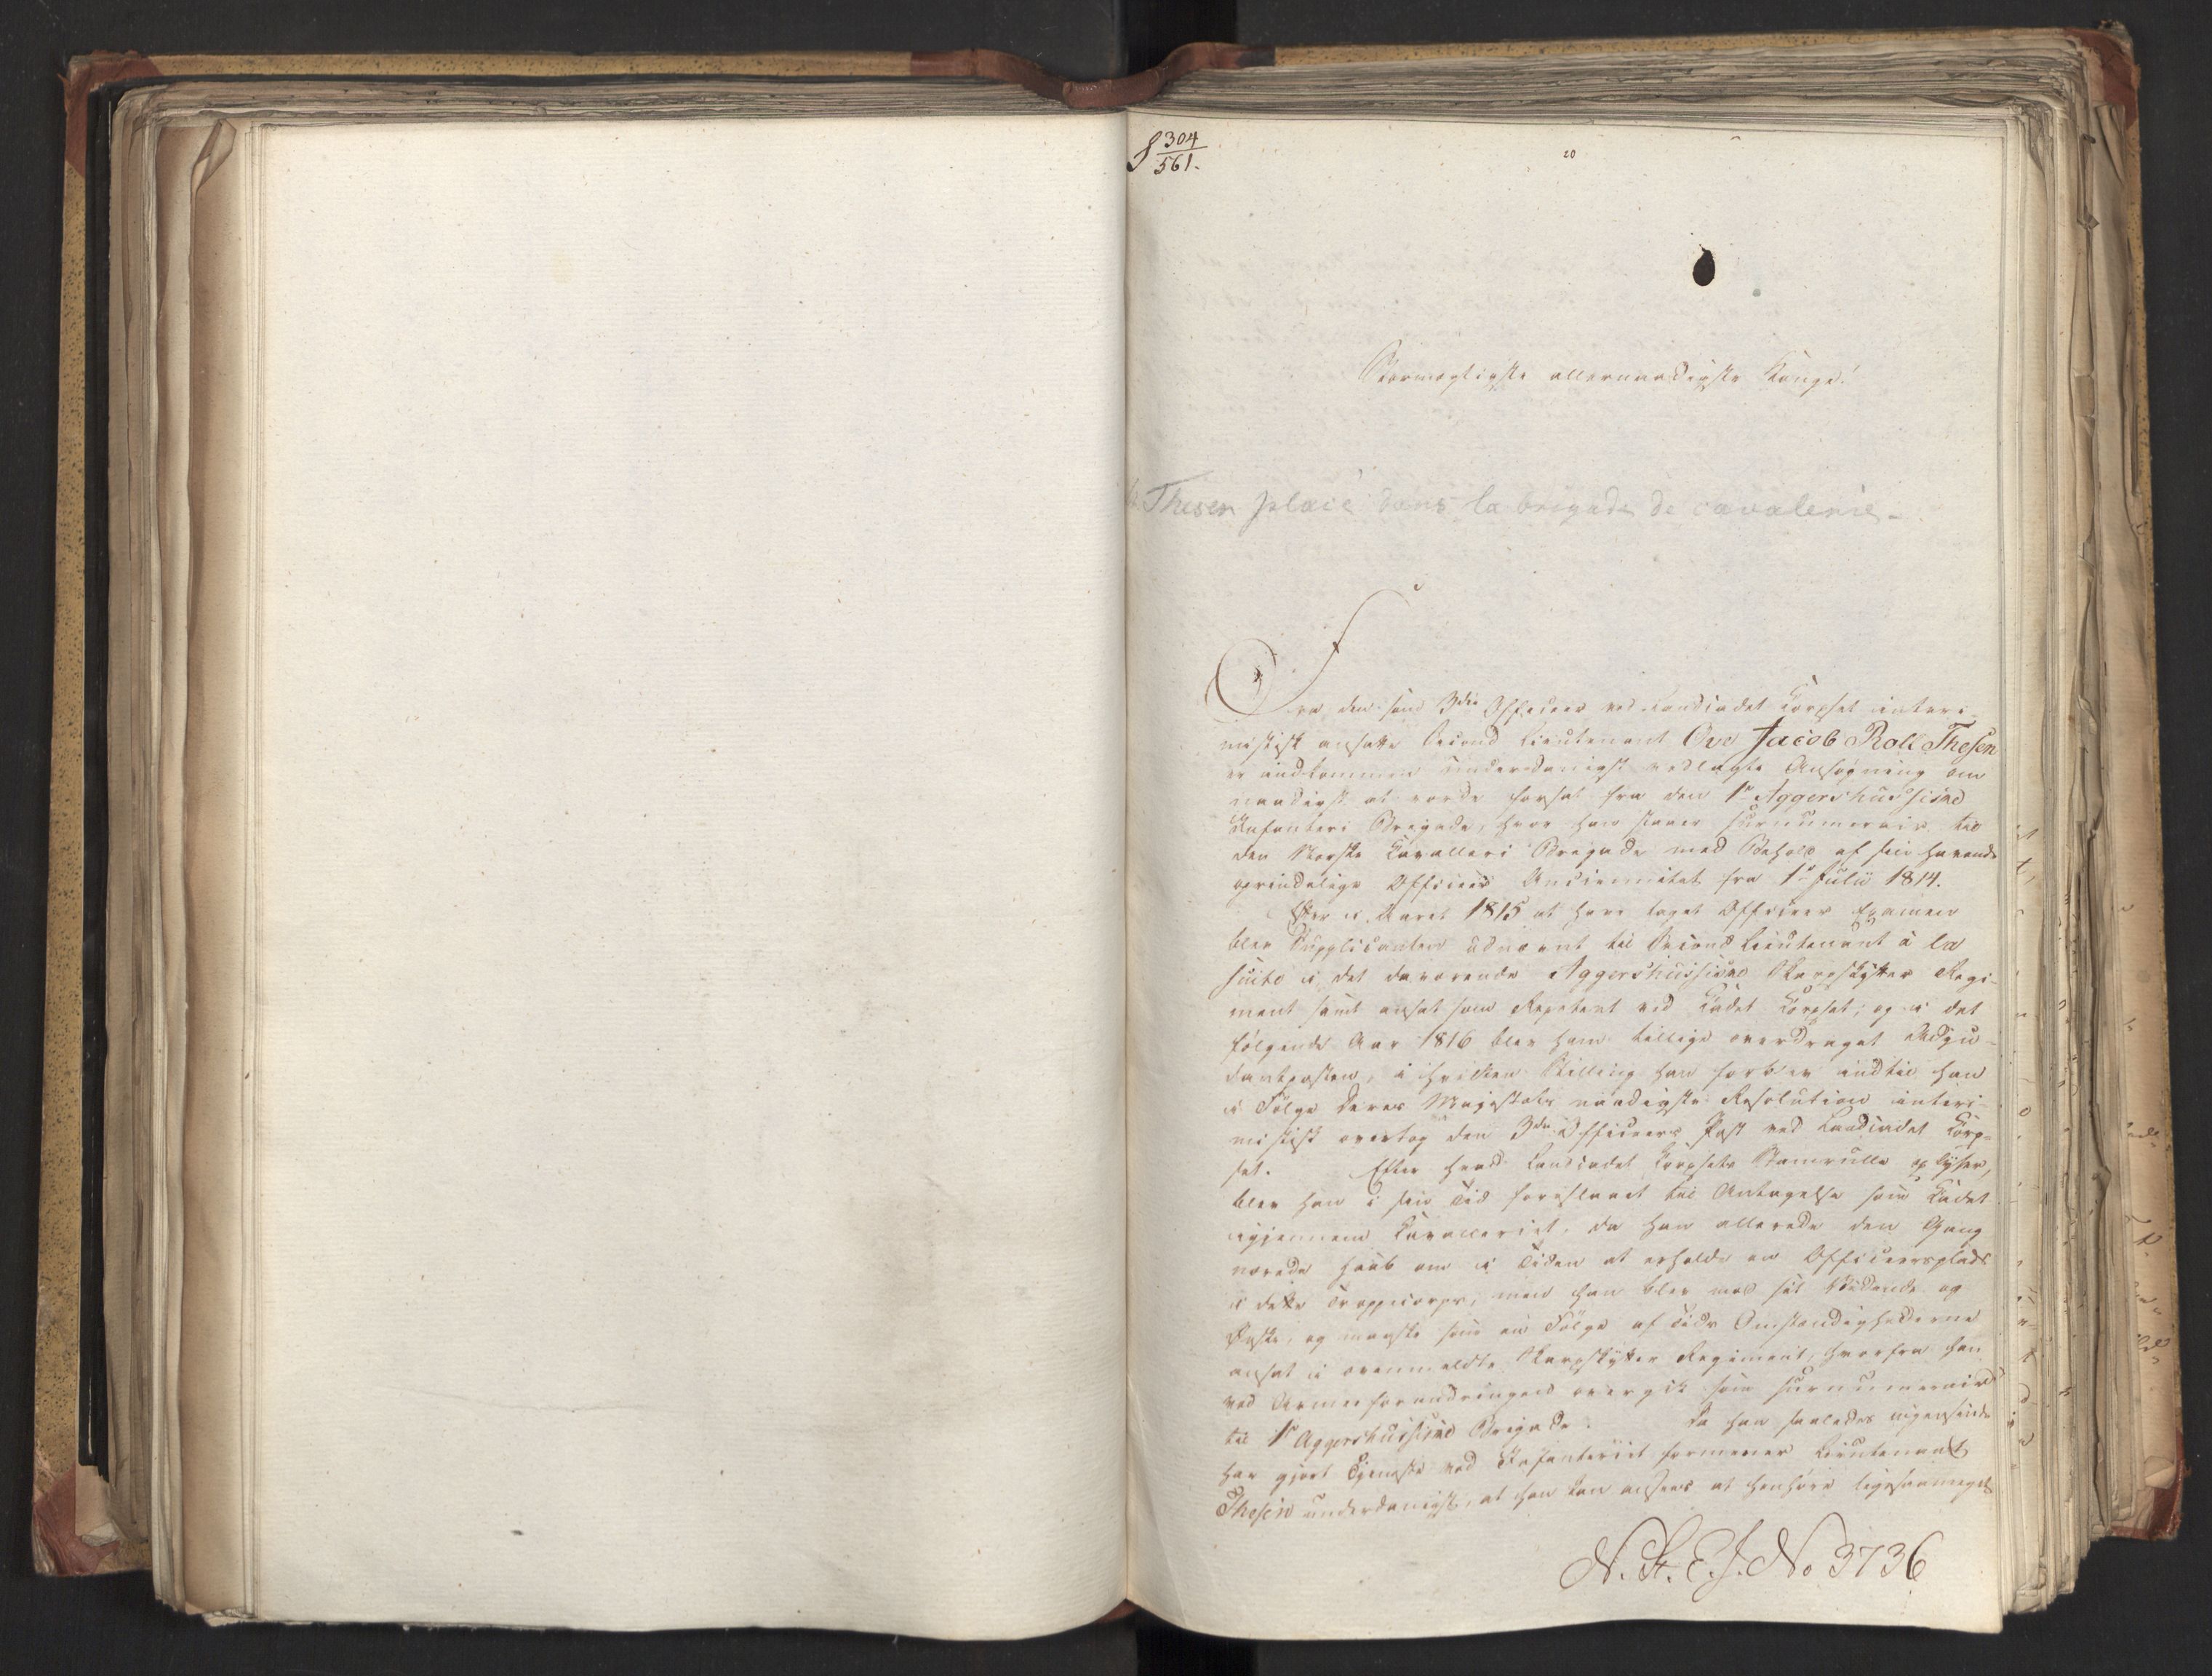 S 304/561.
20
Stormægtigste allernaadigste Konge!
Thesen placé dans la brigade de cavalerie-
Fra den som 3die Officeer ved Landcadet Korpset interi-
mistisk ansatte Second Lieutenant Ove Jacob Roll Thesen
er indkommen underdanigst vedlagte Ansøgning om
naadigst at vorde forsat fra den 1ste Aggershuussiske
Infanteri Brigade, hvor han staaer surnumerair til
den Norske Kavalleri Brigade med Behold af sin havende
oprindelige Officeers Anciennitet fra 1ste Julii 1814.
Efter i Aaret 1815 at have taget Officeers Examen
blev Supplicanten udnævnt til Second Lieutenant à la
suite i det daværende Aggershuusiske Skarpskytter Regi-
ment samt ansat som Repetent ved Kadet Korpset; og i det
følgende Aar 1816 blev ham tillige overdraget Adju-
dantposten, i hvilken Stilling han forblev indtil han
i Følge Deres Majestæts naadigste Resolution interi-
mistisk overtog den 3die Officeers Post ved Landcadet Korp-
set. Efter hvad Landcadet Korpsets Stamrulle oplyser,
blev han i sin Tid foreslaaet til Antagelse som Kadet
igjennem Kavalleriet, da han allerede den Gang
nærede Haab om i Tiden at erholde en Officeersplads
i dette Troppecorps; men han blev mod sit Vidende og
Ønske, og maaske som en Følge af Tids Omstændighederne
ansat i ovenmeldte Skarpskytter Regiment, hvorfra han
ved Armeeforandringen overgik som surnumerair
til 1ste Aggershuusiske Brigade. Da han saaledes ingensinde
har gjort Tjeneste ved Infanteriet formener Lieutenant
Thesen underdanigst, at han kan ansees at henhøre ligesaameget
N. St. E. J. No 3736